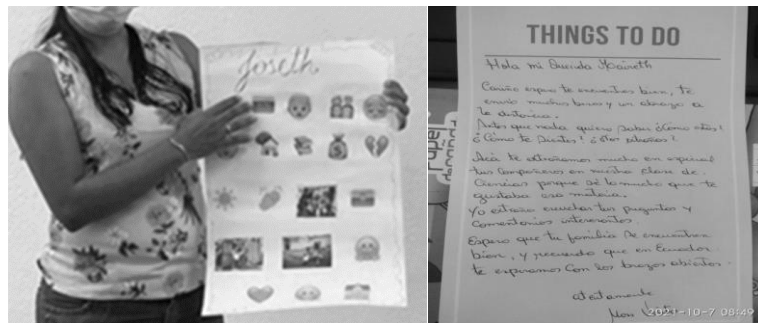 Joseth
THINGS TO DO
Hola mi Querida Yaineth
Cariño espero te encuentres bien, te
envío muchos besos y un abrazo a
la distancia.
Antes que nada quiero saber ¿Cómo estás?
¿Cómo te sientes?
Acá te extrañamos mucho en especial
tus compañeros en nuestra clase de
Ciencias porque sé lo mucho que te
gustaba esa materia.
Yo extraño escuchar tus preguntas y
comentarios interesantes.
Espero que tu familia se encuentre
bien, y recuerda que en Ecuador
te esperamos con los brazos abiertos.
Atentamente
2021-10-7 08:49